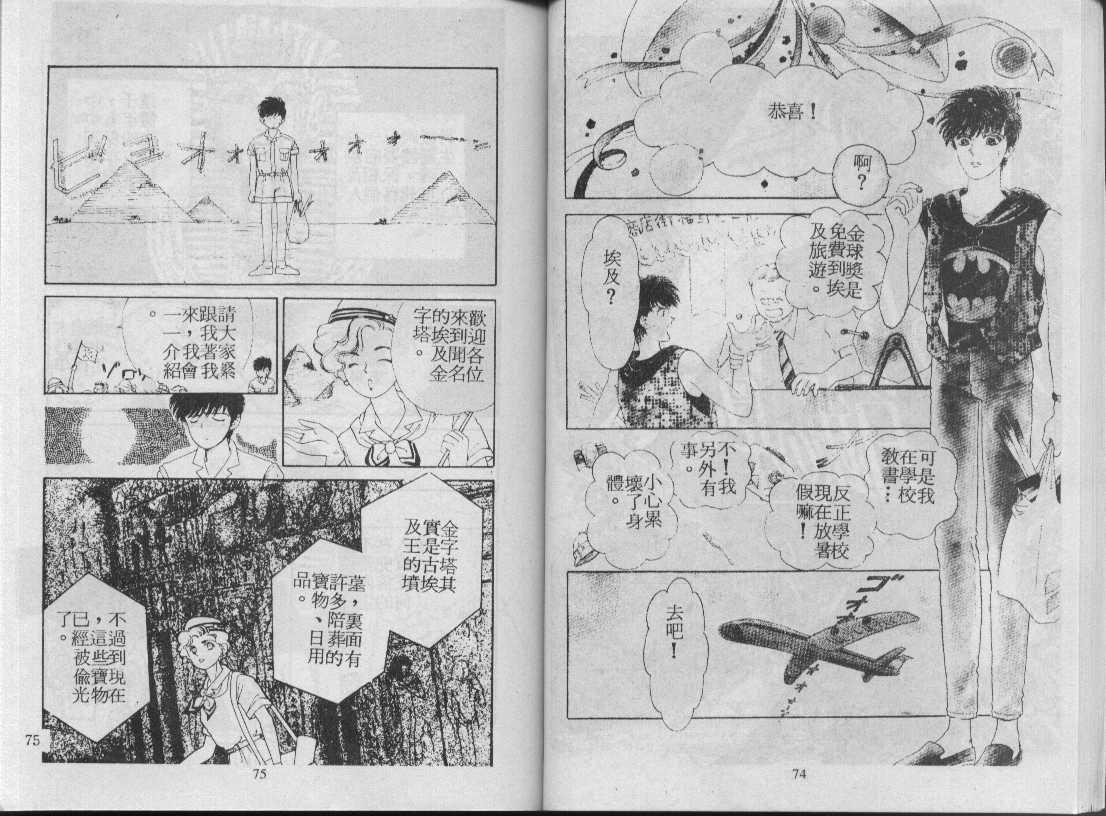 恭喜！
啊？
金球獎是
免費到埃
及旅遊。
埃及？
可是我
在學校
教書…
反正學校
現在放暑
假嘛！
不！我
另外有
事。
小心累
壞了身
體。
ゴオオオ
去吧！
74
ビュオオオオオー
歡迎各位
來到聞名
的埃及金
字塔。
請大家緊
跟著我
來，我會
一一介紹
。
ゾロゾロ
金字塔其
實是古埃
及王的墳
墓，裏面有
許多陪葬的
寶物、日用
品。
不過到現在
，這些寶物
已經被偷光
了。
75
75